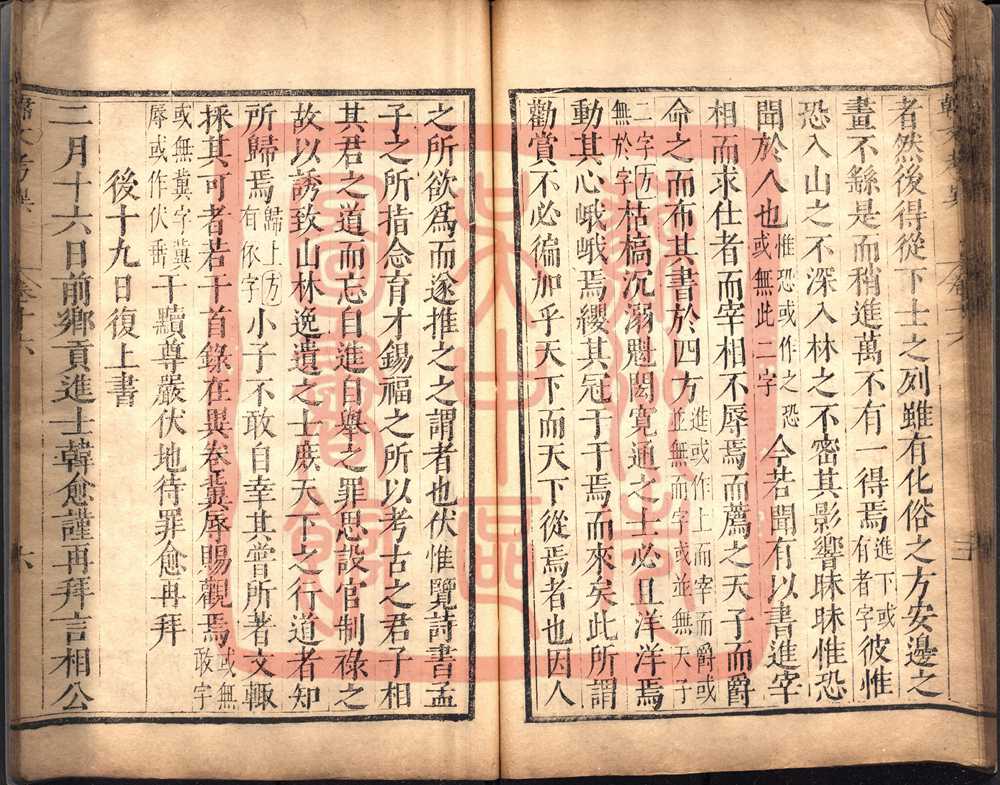 者然後得從下士之列雖有化俗之方安邊之
畫不繇是而稍進萬不有一得焉進下或有者字彼惟
恐入山之不深入林之不密其影響昧昧惟恐
聞於人也惟恐或作之恐或無此二字今若聞有以書進宰
相而求仕者而宰相不辱焉而薦之天子而爵
命之而布其書於四方進或作上而宰而爵或並無而字或並無天子
二字方無於字枯槁沉溺魁閎寬通之士必且洋洋焉
動其心峨峨焉纓其冠于于焉而來矣此所謂
勸賞不必徧加乎天下而天下從焉者也因人
之所欲爲而遂推之之謂者也伏惟覽詩書孟
子之所指念育才錫福之所以考古之君子相
其君之道而忘自進自舉之罪思設官制祿之
故以誘致山林逸遺之士庶天下之行道者知
所歸焉歸上方有依字小子不敢自幸其嘗所著文輒
採其可者若干首錄在異卷冀辱賜觀焉或無敢字
或無冀字冀辱或作伏垂干黷尊嚴伏地待罪愈再拜
後十九日復上書
二月十六日前鄉貢進士韓愈謹再拜言相公